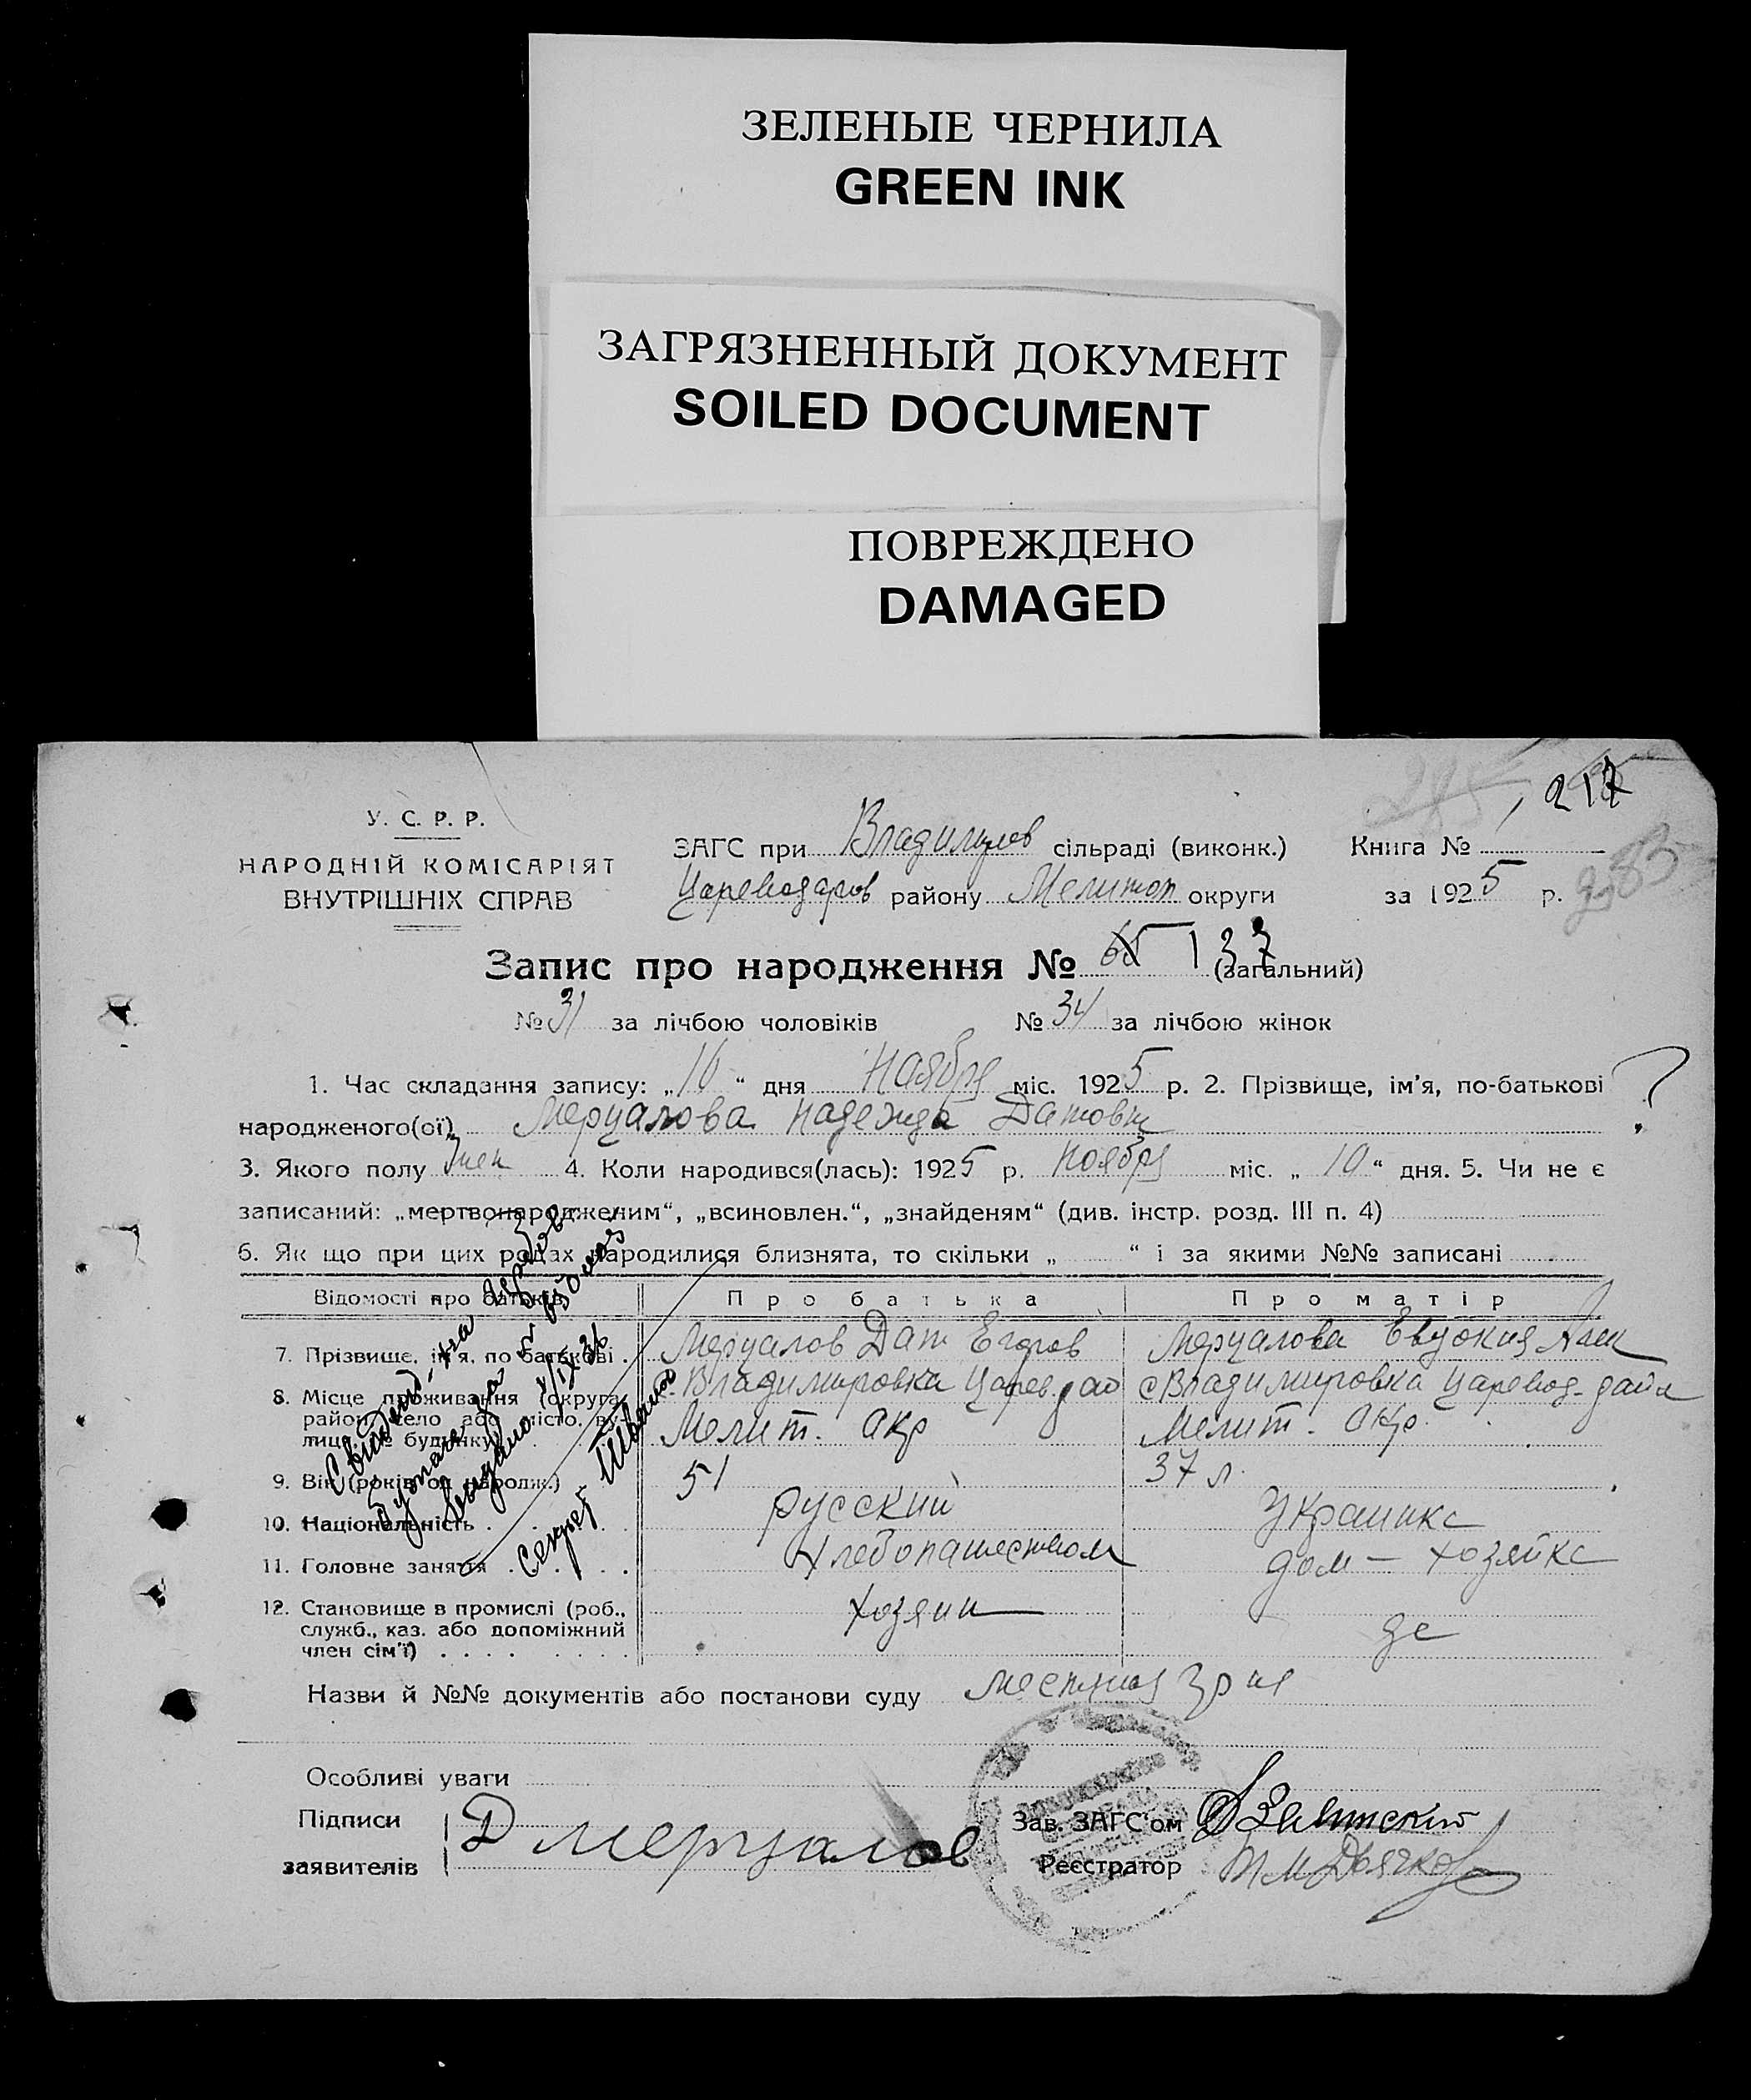 ЗЕЛЕНЫЕ ЧЕРНИЛА
GREEN INK
ЗАГРЯЗНЕННЫЙ ДОКУМЕНТ
SOILED DOCUMENT
ПОВРЕЖДЕНО
DAMAGED
217
У. С. Р. Р.
НАРОДНІЙ КОМІСАРІЯТ
ВНУТРІШНІХ СПРАВ
ЗАГС при Владимиров сільраді (виконк.) Книга №
Цареводаров району Мелитоп округи за 1925 р. 283
Запис про народження № 65 137 (загальний)
№ 31 за лічбою чоловіків № 34 за лічбою жінок
1. Час складання запису: „10“ дня Ноября міс. 1925 р. 2. Прізвище, ім’я, по-батькові ?
народженого(ої) Мерцалова Надежда Датовн
3. Якого полу Жен 4. Коли народився(лась): 1925 р. Ноября міс. „10“ дня. 5. Чи не є
записаний: „мертвонародженим“, „всиновлен.“, „знайденям“ (див. інстр. розд. III п. 4)
6. Як що при цих родах народилися близнята, то скільки „ “ і за якими №№ записані
Відомості про батьків Про батька Про матір
7. Прізвище, ім’я, по батькові . Мерцалов Дат Егоров Мерцалова Евдокия
8. Місце проживання (округа, с. Владимировка Царев. с Владимировка Царевод-
район, село або місто, ву-
лиця, № будинку) Мелит. окр Мелит. окр.
9. Вік (років од народж.) 51 37 л.
10. Національність . русский Украинка
11. Головне заняття . хлебопашеством дом — хозяйка
12. Становище в промислі (роб.,
служб., хаз. або допоміжний хозяин
член сім’ї) де
Назви й №№ документів або постанови суду
Особливі уваги
Підписи
заявителів Д Мерцалов
Зав. ЗАГС’ом
Реєстратор Дьячков
видано
Секрет